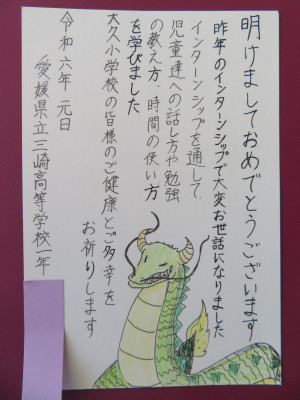 明けましておめでとうございます
昨年のインターンシップで大変お世話になりました
インターンシップを通して、
児童達への話し方や勉強
の教え方、時間の使い方
を学びました
大久小学校の皆様のご健康とご多幸を
お祈りします
令和六年 元日
愛媛県立三崎高等学校一年